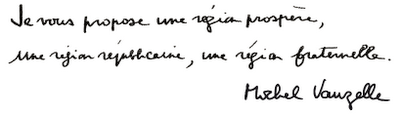 Je vous propose une région prospère,
une région républicaine, une région fraternelle.
Michel Vauzelle